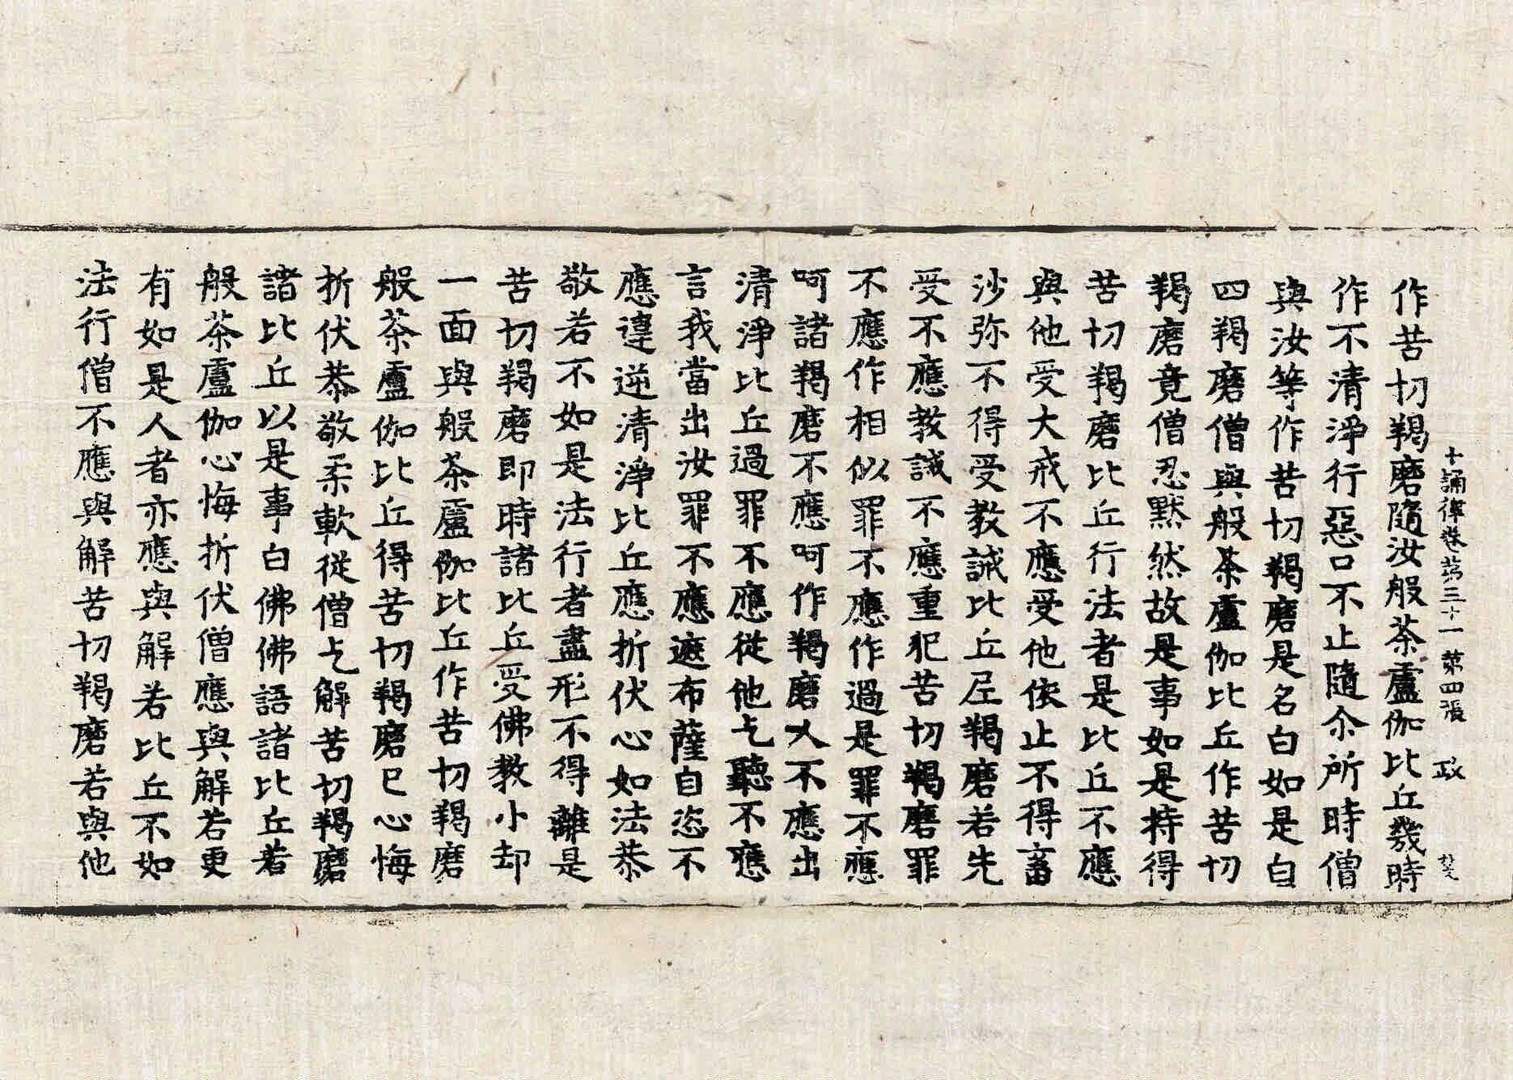 十誦律卷第三十一　第四張　政
作苦切羯磨隨汝般茶盧伽比丘幾時
作不清淨行惡口不止隨尒所時僧
與汝等作苦切羯磨是名白如是白
四羯磨僧與般茶盧伽比丘作苦切
羯磨竟僧忍默然故是事如是持得
苦切羯磨比丘行法者是比丘不應
與他受大戒不應受他依止不得畜
沙弥不得受教誡比丘尼羯磨若先
受不應教誡不應重犯苦切羯磨罪
不應作相似罪不應作過是罪不應
呵諸羯磨不應呵作羯磨人不應出
清淨比丘過罪不應從他乞聽不應
言我當出汝罪不應遮布薩自恣不
應違逆清淨比丘應折伏心如法恭
敬若不如是法行者盡形不得離是
苦切羯磨即時諸比丘受佛教小却
一面與般茶盧伽比丘作苦切羯磨
般茶盧伽比丘得苦切羯磨已心悔
折伏恭敬柔軟從僧乞解苦切羯磨
諸比丘以是事白佛佛語諸比丘若
般茶盧伽心悔折伏僧應與解若更
有如是人者亦應與解若比丘不如
法行僧不應與解苦切羯磨若與他